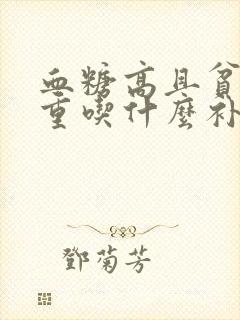 血糖高且貧
重喫什麼补
鄧菊芳